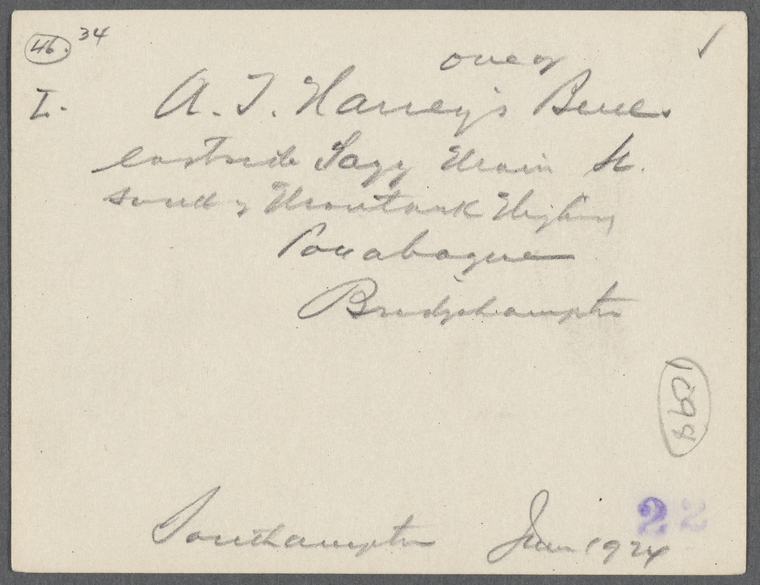 46. 34
one of
I. A. T. Harvey's
east side Sagg Main St.
south of Montauk Highway
Poxabogue
Bridgehampton
1898
22
Southampton Jan 1924